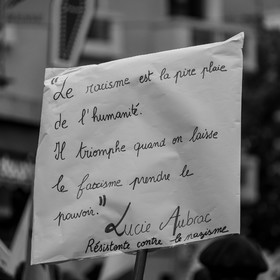 "Le racisme est la pire plaie
de l'humanité.
Il triomphe quand on laisse
le fascisme prendre le
pouvoir."
Lucie Aubrac
Résistante contre le nazisme